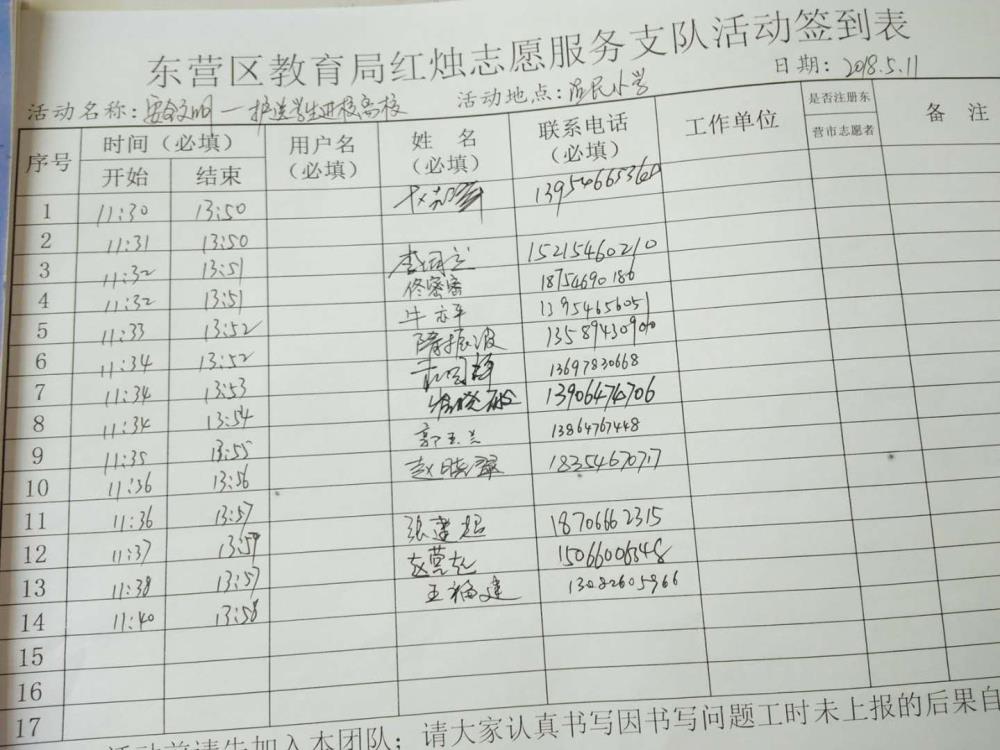 东营区教育局红烛志愿服务支队活动签到表
活动名称: 安全文明一护送学生进校离校 活动地点: 小学 日期: 2018.5.11
序号 时间（必填） 用户名（必填） 姓 名（必填） 联系电话（必填） 工作单位 是否注册东营市志愿者 备 注
开始 结束
1 11:30 13:50 13954665360
2 11:31 13:50
3 11:32 13:51 15215460210
4 11:32 13:51 佟密密 18754690186
5 11:33 13:52 牛 13954656051
6 11:34 13:52 隋振波 13589430900
7 11:34 13:53 13697830668
8 11:34 13:54 13906474706
9 11:35 13:55 郭玉兰 13864767448
10 11:36 13:56 赵晓翠 18354670717
11 11:36 13:57
12 11:37 13:57 张建超 18706662315
13 11:38 13:57 赵 15066006348
14 11:40 13:58 王福建 13082605966
15
16
17
活动前请先加入本团队；请大家认真书写因书写问题工时未上报的后果自